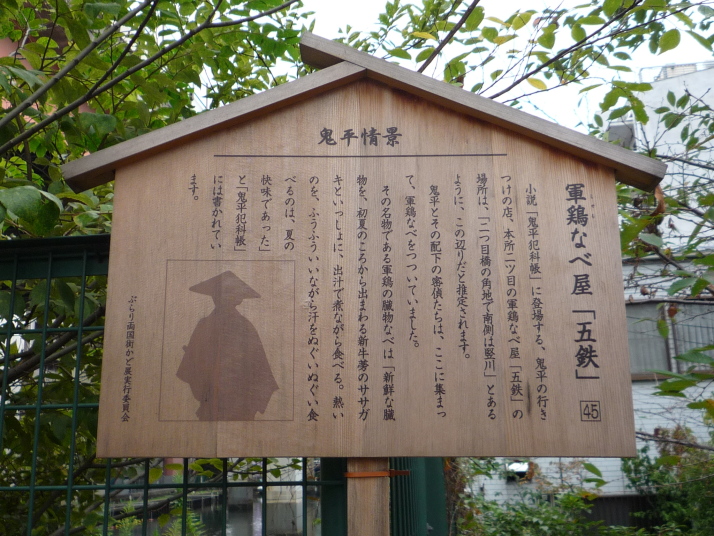 鬼平情景
軍鶏なべ屋「五鉄」
45
小説「鬼平犯科帳」に登場する、鬼平の行き
つけの店、本所二ツ目の軍鶏なべ屋「五鉄」の
場所は、「二つ目橋の角地で南側は竪川」とある
ように、この辺りだと推定されます。
鬼平とその配下の密偵たちは、ここに集まっ
て、軍鶏なべをつついていました。
その名物である軍鶏の臓物なべは「新鮮な臓
物を、初夏のころから出まわる新牛蒡のササガ
キといっしょに、出汁で煮ながら食べる。熱い
のを、ふうふういいながら汗をぬぐいぬぐい食
べるのは、夏の
快味であった」
と「鬼平犯科帳」
には書かれてい
ます。
ぶらり両国街かど展実行委員会